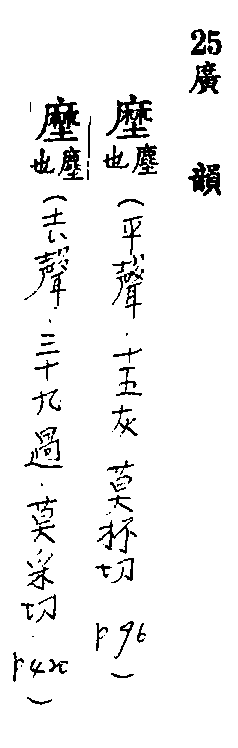 25廣韻
塺塵也（平聲．十五灰 莫杯切 P96）
塺塵也（去聲．三十九過．莫臥切．P42